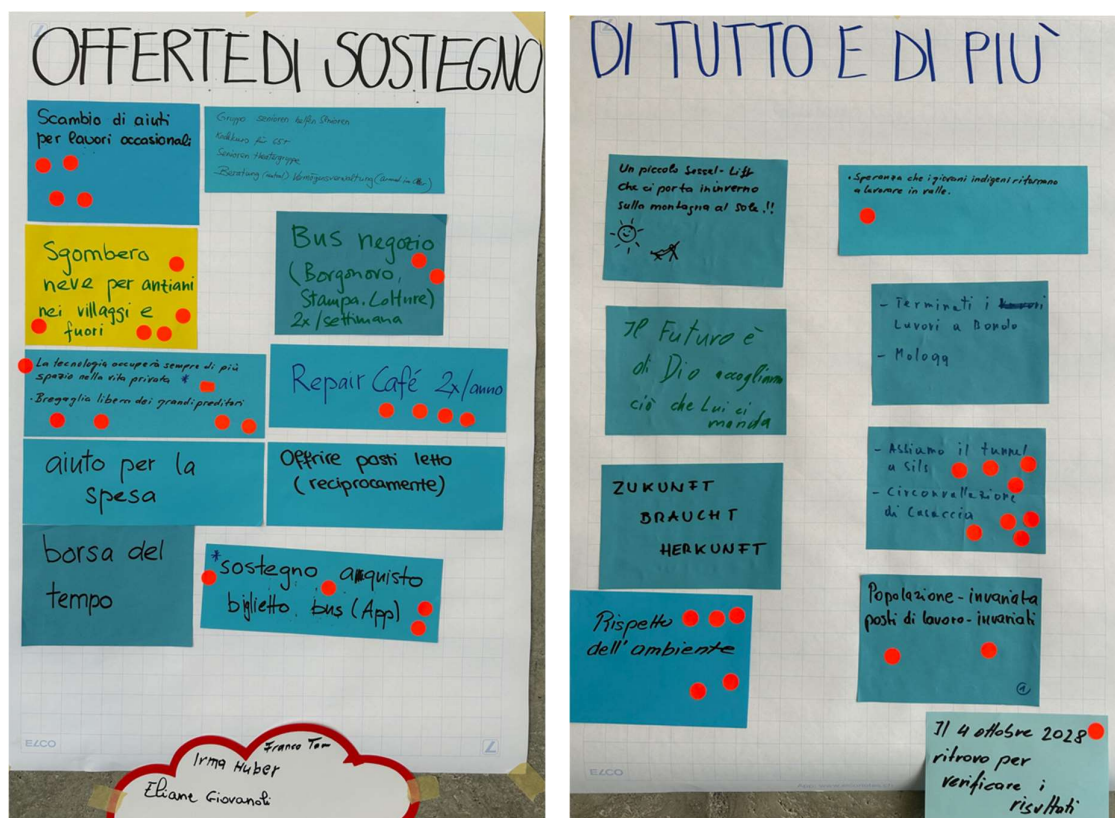 OFFERTE DI SOSTEGNO
Scambio di aiuti
per lavori occasionali
Gruppo senioren helfen Senioren
für CST
Senioren Theatergruppe
Sgombero
neve per antiani
nei villaggi e
fuori
Bus negozio
(Borgonovo,
Stampa, Coltura)
2x/settimana
La tecnologia occuperà sempre di più
spazio nella vita privata *
Bregaglia libera dei grandi preditori
Repair Café 2x/anno
aiuto per la
spesa
Offrire posti letto
(reciprocamente)
borsa del
tempo
*sostegno acquisto
biglietto bus (App)
ELCO
Z
Franco
Irma Huber
Eliane Giovanoli
DI TUTTO E DI PIÙ
Un piccolo Sessel-Lift
che ci porta in inverno
sulla montagna al sole!!
• Speranza che i giovani indigeni ritornano
a lavorare in valle.
Il Futuro è
di Dio accogliamo
ciò che Lui ci
manda
- Terminati i
Lavori a Bondo
- Maloggia
ZUKUNFT
BRAUCHT
HERKUNFT
- il tunnel
a Sils
- Circonvallazione
di Casaccia
Rispetto
dell'ambiente
Popolazione - invariata
posti di lavoro - invariati
1
Il 4 ottobre 2028
ritrovo per
verificare i
risultati
ELCO